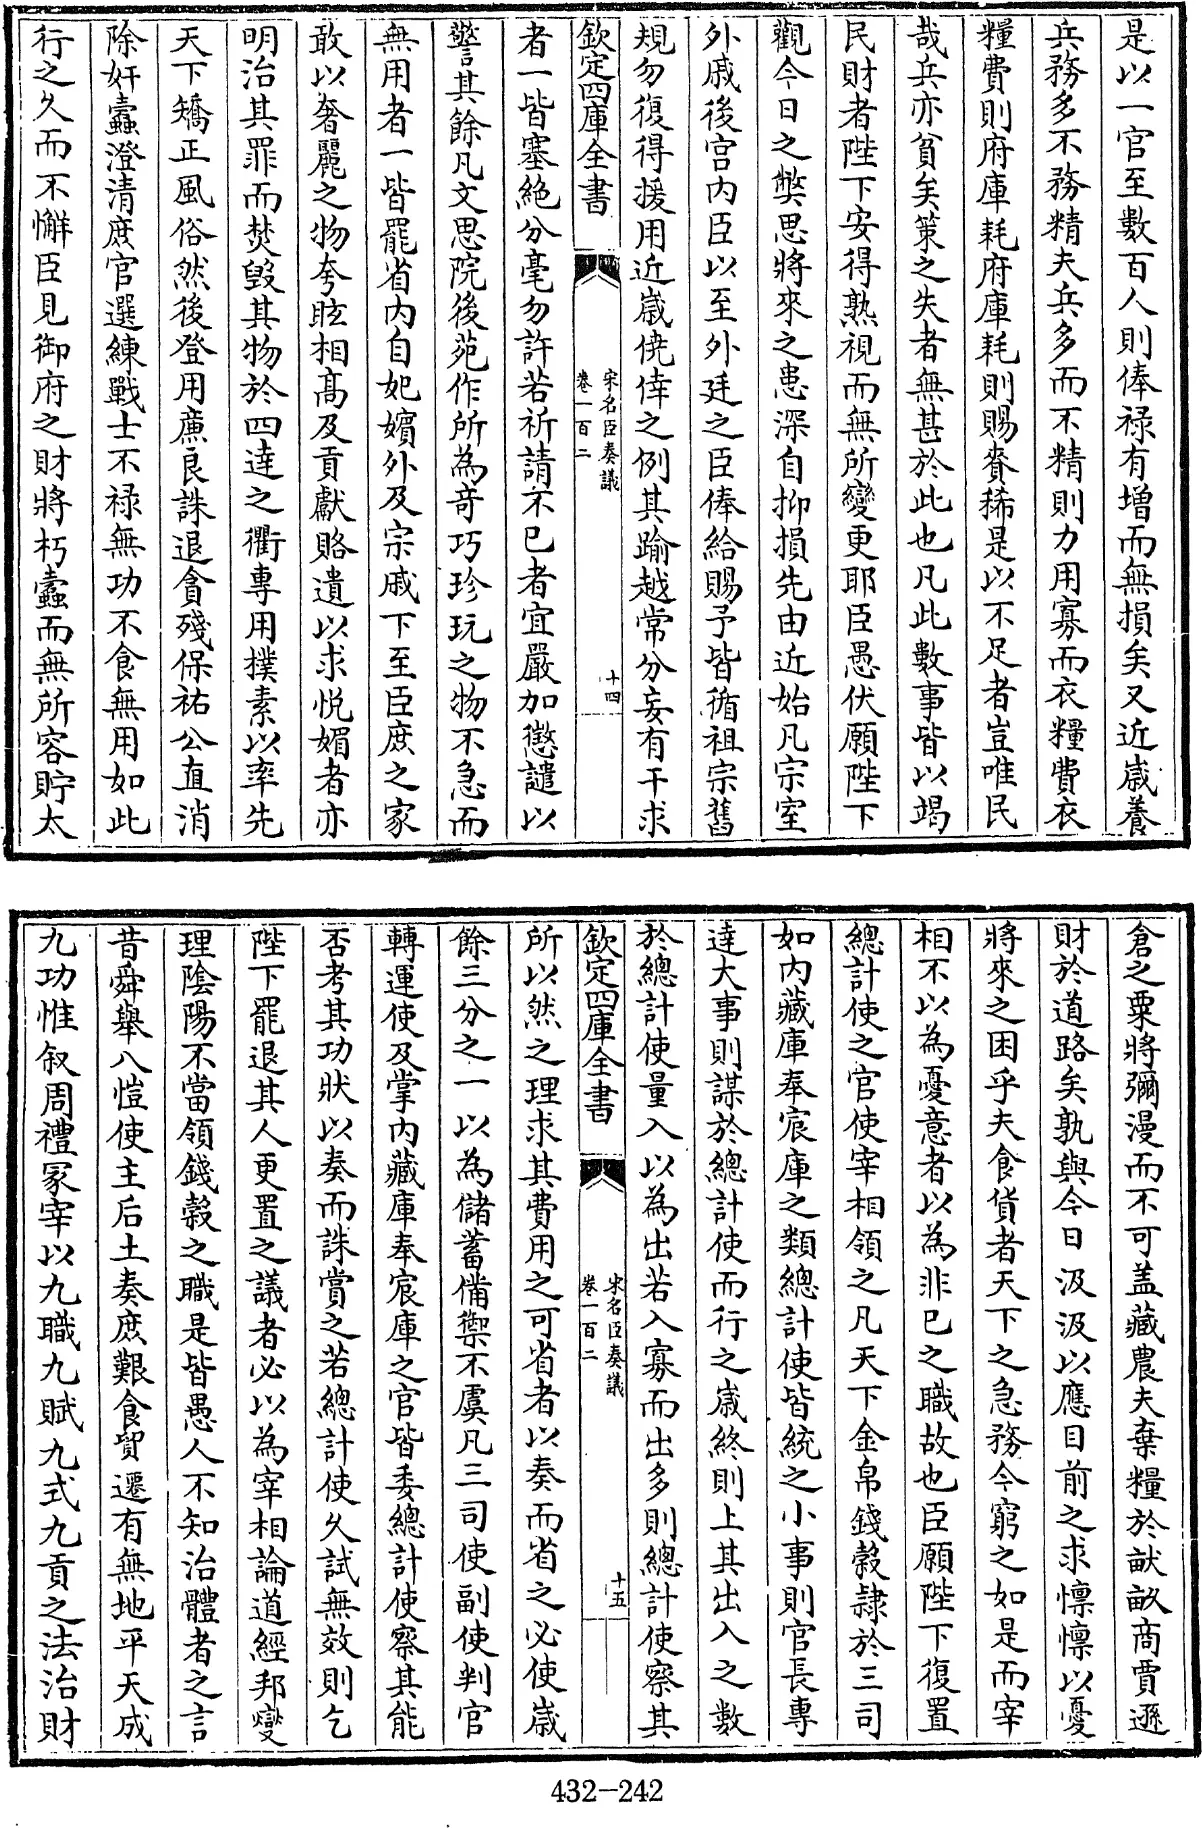 是以一官至數百人則俸禄有增而無損矣又近嵗養
兵務多不務精夫兵多而不精則力用寡而衣糧費衣
糧費則府庫耗府庫耗則賜賚稀是以不足者豈唯民
哉兵亦貧矣策之失者無甚於此也凡此數事皆以竭
民財者陛下安得熟視而無所變更耶臣愚伏願陛下
觀今日之弊思將來之患深自抑損先由近始凡宗室
外戚後宫内臣以至外廷之臣俸給賜予皆循祖宗舊
規勿復得援用近嵗僥倖之例其踰越常分妄有干求
欽定四庫全書
宋名臣奏議
卷一百二
十四
者一皆塞絶分毫勿許若祈請不已者宜嚴加懲譴以
警其餘凡文思院後苑作所為竒巧珍玩之物不急而
無用者一皆罷省内自妃嬪外及宗戚下至臣庶之家
敢以奢麗之物夸眩相髙及貢獻賂遺以求悦媚者亦
明治其罪而焚毁其物於四逹之衢專用撲素以率先
天下矯正風俗然後登用廉良誅退貪殘保祐公直消
除奸蠧澄清庶官選練戰士不禄無功不食無用如此
行之久而不懈臣見御府之財將朽蠧而無所容貯太
倉之粟將彌漫而不可盖藏農夫棄糧於畎畝商賈遜
財於道路矣孰與今日汲汲以應目前之求懔懔以憂
將來之困乎夫食貨者天下之急務今窮之如是而宰
相不以為憂意者以為非已之職故也臣願陛下復置
總計使之官使宰相領之凡天下金帛錢穀隷於三司
如内藏庫奉宸庫之類總計使皆統之小事則官長專
達大事則謀於總計使而行之嵗終則上其出入之數
於總計使量入以為出若入寡而出多則總計使察其
欽定四庫全書
宋名臣奏議
卷一百二
十五
所以然之理求其費用之可省者以奏而省之必使嵗
餘三分之一以為儲蓄備禦不虞凡三司使副使判官
轉運使及掌内藏庫奉宸庫之官皆委總計使察其能
否考其功狀以奏而誅賞之若總計使久試無效則乞
陛下罷退其人更置之議者必以為宰相論道經邦燮
理陰陽不當領錢穀之職是皆愚人不知治體者之言
昔舜舉八愷使主后土奏庶艱食貿遷有無地平天成
九功惟叙周禮冢宰以九職九賦九式九貢之法治財
432-242